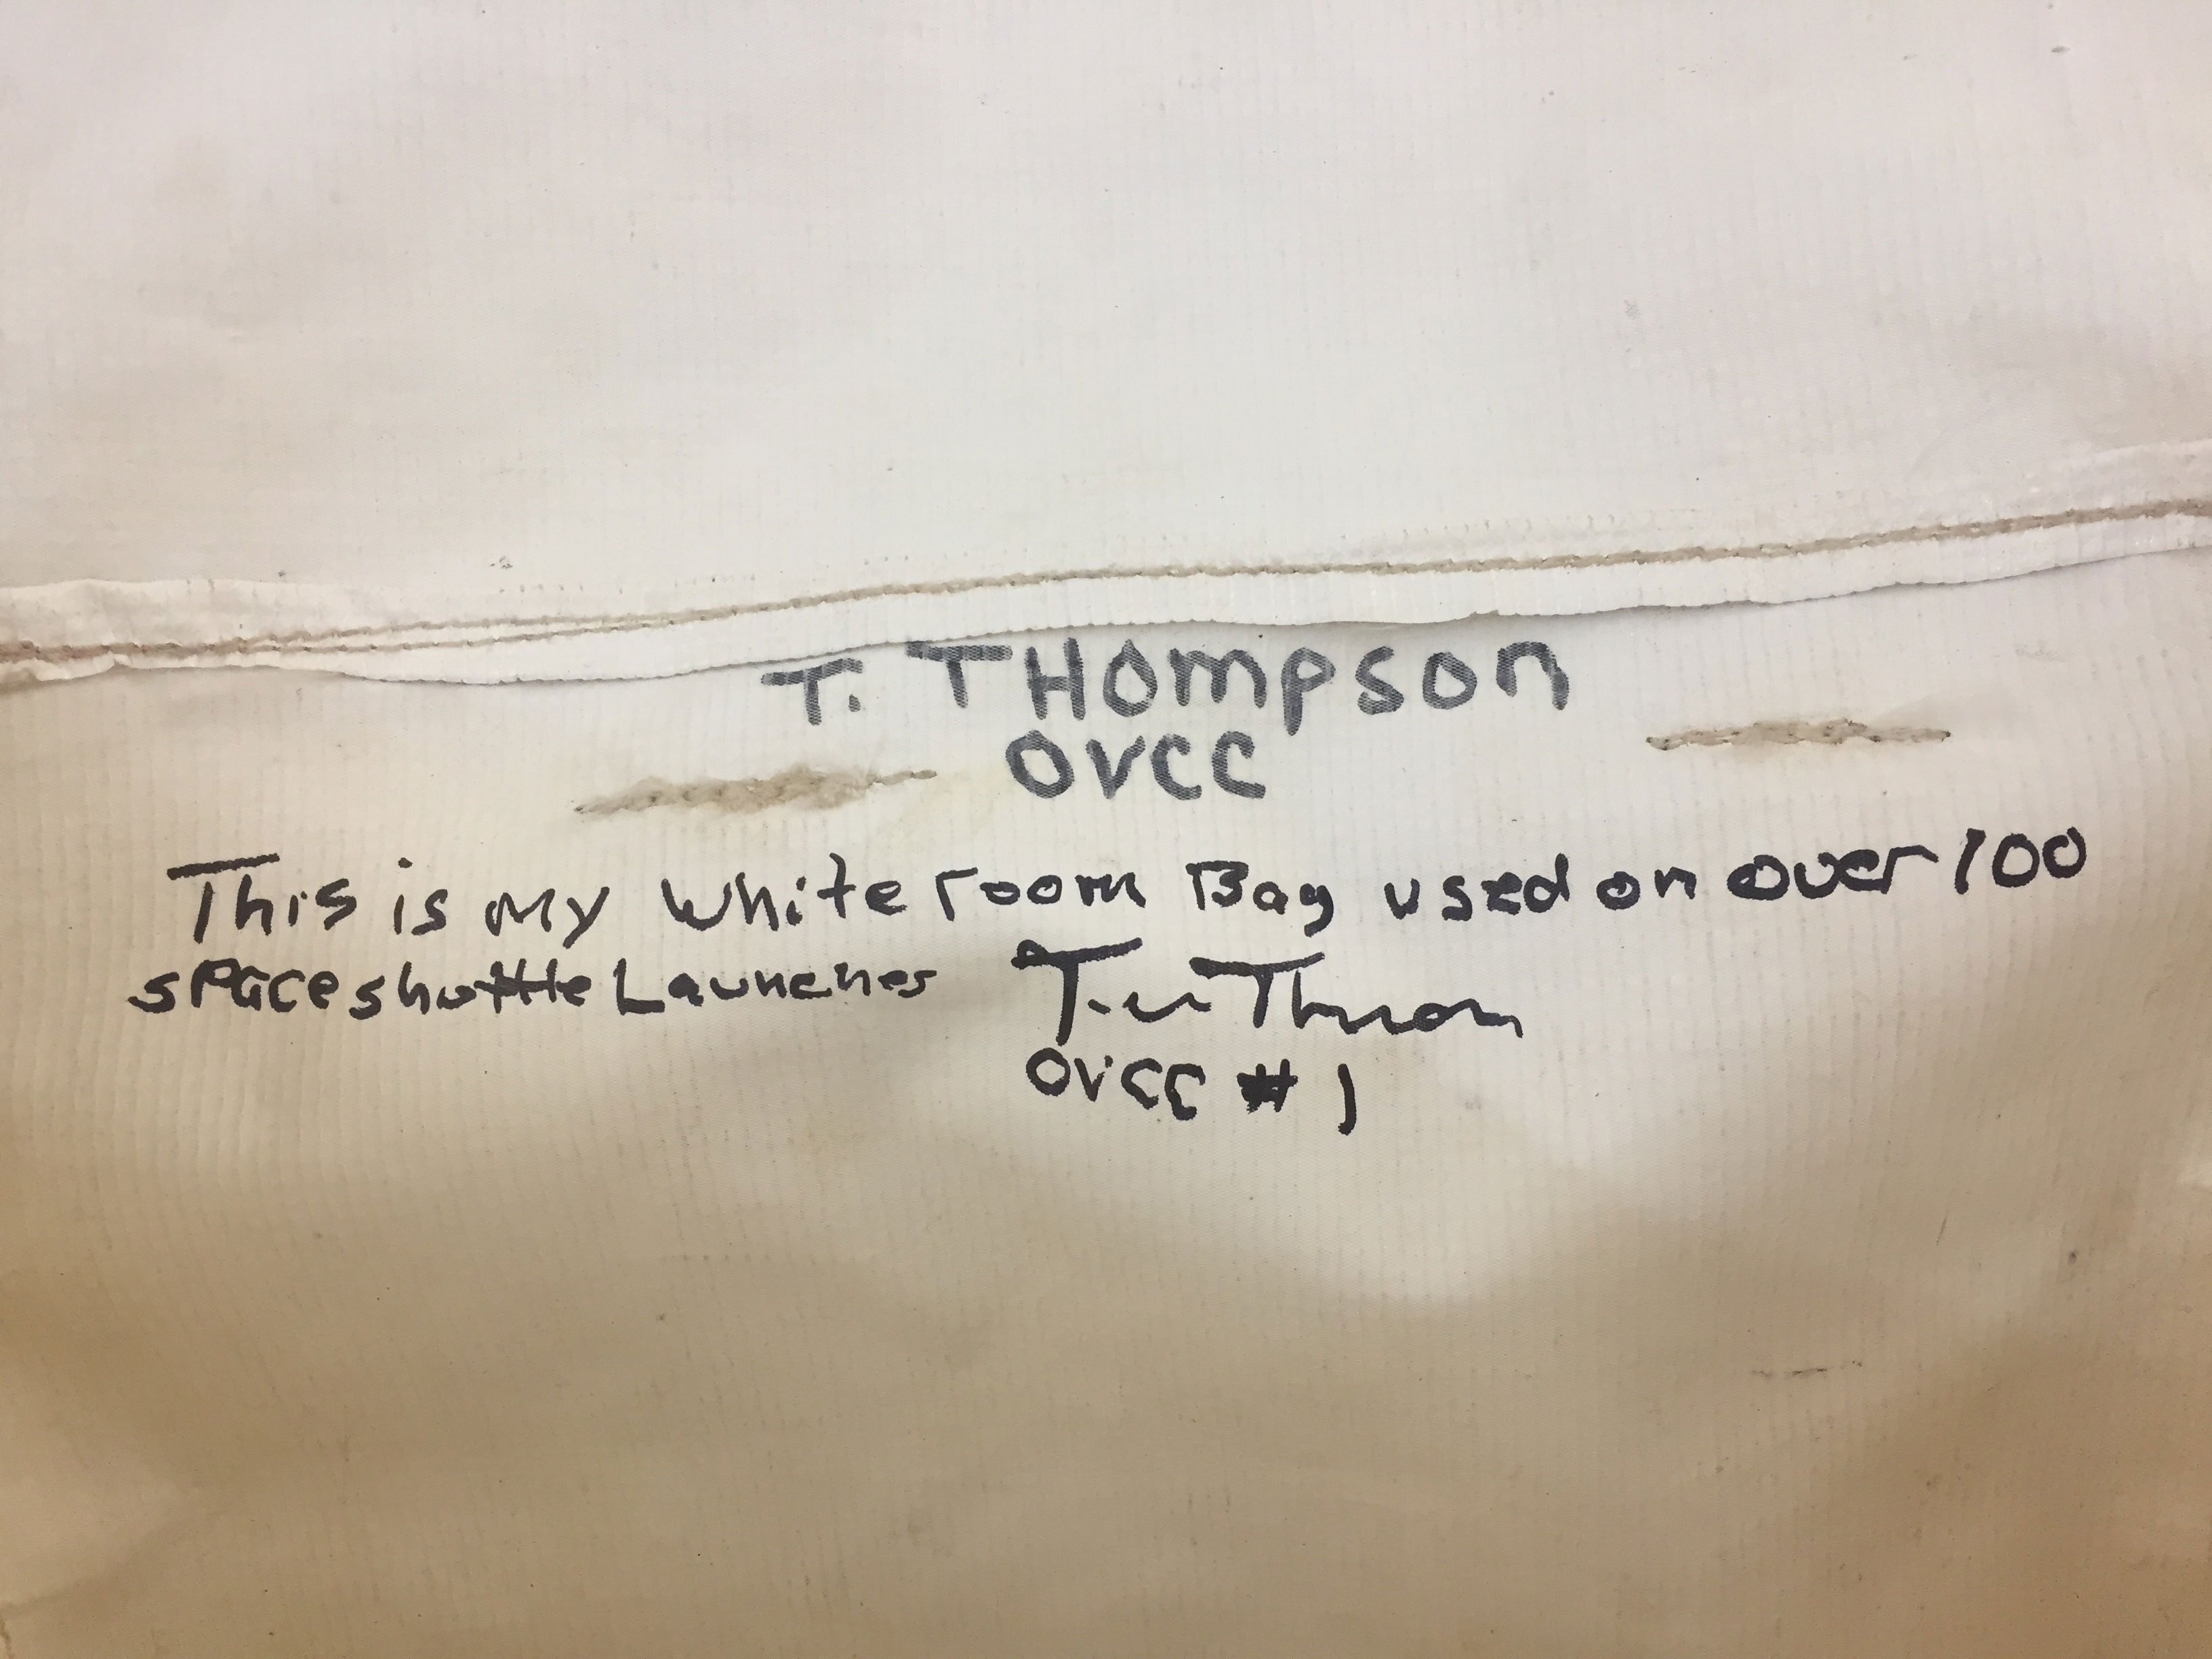 T. THOMPSON
OVCC
This is my white room Bag used on over 100
space shuttle Launches
OVCC #1